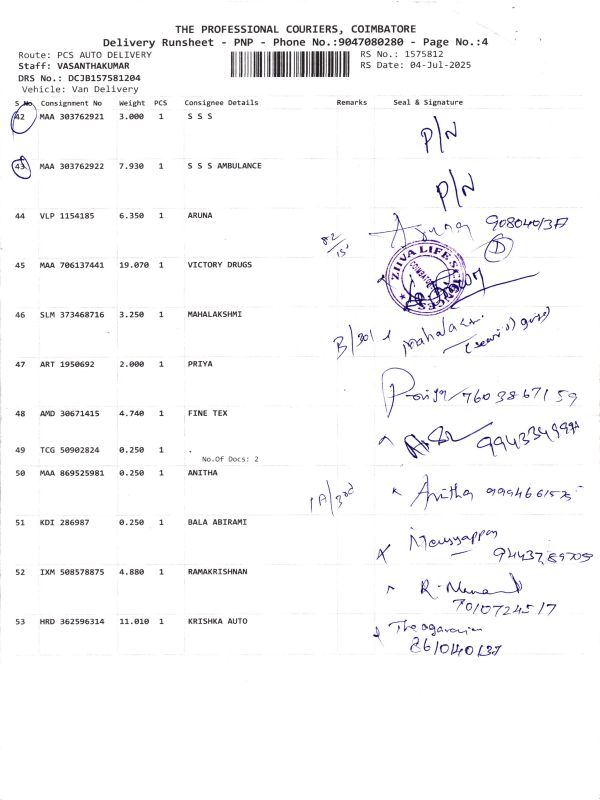 THE PROFESSIONAL COURIERS, COIMBATORE
Delivery Runsheet - PNP - Phone No.:9047080280 - Page No.:4
Route: PCS AUTO DELIVERY
Staff: VASANTHAKUMAR
DRS No.: DCJB157581204
Vehicle: Van Delivery
RS No.: 1575812
RS Date: 04-Jul-2025
S.No. Consignment No Weight PCS Consignee Details Remarks Seal & Signature
42 MAA 303762921 3.000 1 S S S P/N
43 MAA 303762922 7.930 1 S S S AMBULANCE P/N
44 VLP 1154185 6.350 1 ARUNA
Aruna
45 MAA 706137441 19.070 1 VICTORY DRUGS
ZIIVA LIFE
COIMBATORE
46 SLM 373468716 3.250 1 MAHALAKSHMI
B/301
47 ART 1950692 2.000 1 PRIYA
7603867159
48 AMD 30671415 4.740 1 FINE TEX
49 TCG 50902824 0.250 1 .
No.Of Docs: 2
50 MAA 869525981 0.250 1 ANITHA
1A/3rd Anitha
51 KDI 286987 0.250 1 BALA ABIRAMI
52 IXM 508578875 4.880 1 RAMAKRISHNAN
7010724517
53 HRD 362596314 11.010 1 KRISHKA AUTO